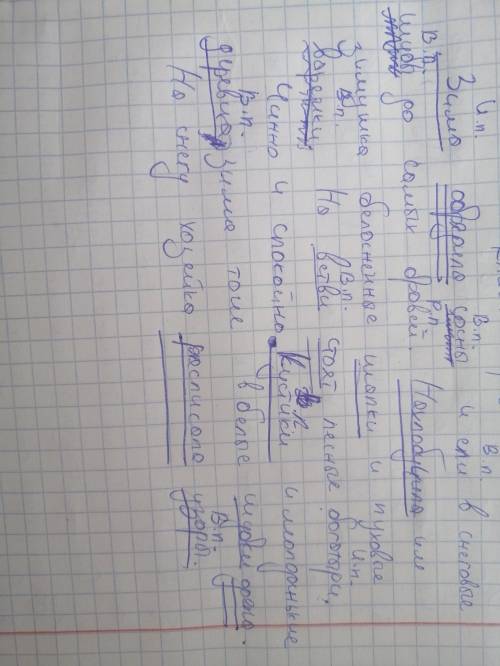 И.п. В.п. В.п.
Зима обрядила сосны и ели в снеговые
В.п. Р.п.
шубы до самых бровей. Нахлобучила им
Зимушка белоснежные шапки и пуховые
В.п. В.п. И.п.
варежки На ветви стоят лесные богатыри,
В.п.
Чинно и спокойно. Кустики и молоденькие
В.п.
деревца зима тоже в белые шубки одела.
В.п.
На снегу хозяйка расписала узоры.